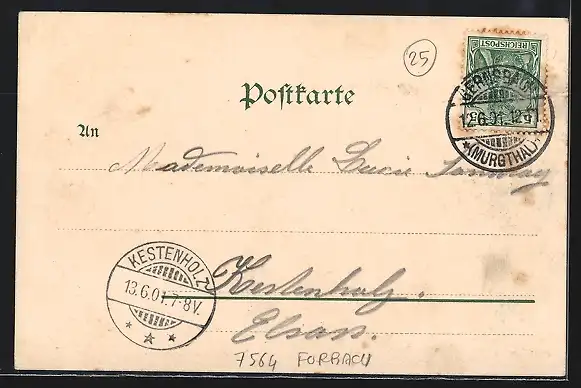 25
REICHSPOST
Postkarte
GERNSBACH
12.6.01. 12-
*(MURGTHAL)*
An
Mademoiselle Lucie
KESTENHOLZ
13.6.01. 7-8V.
Kestenholz.
Elsass.
7564 FORBACH